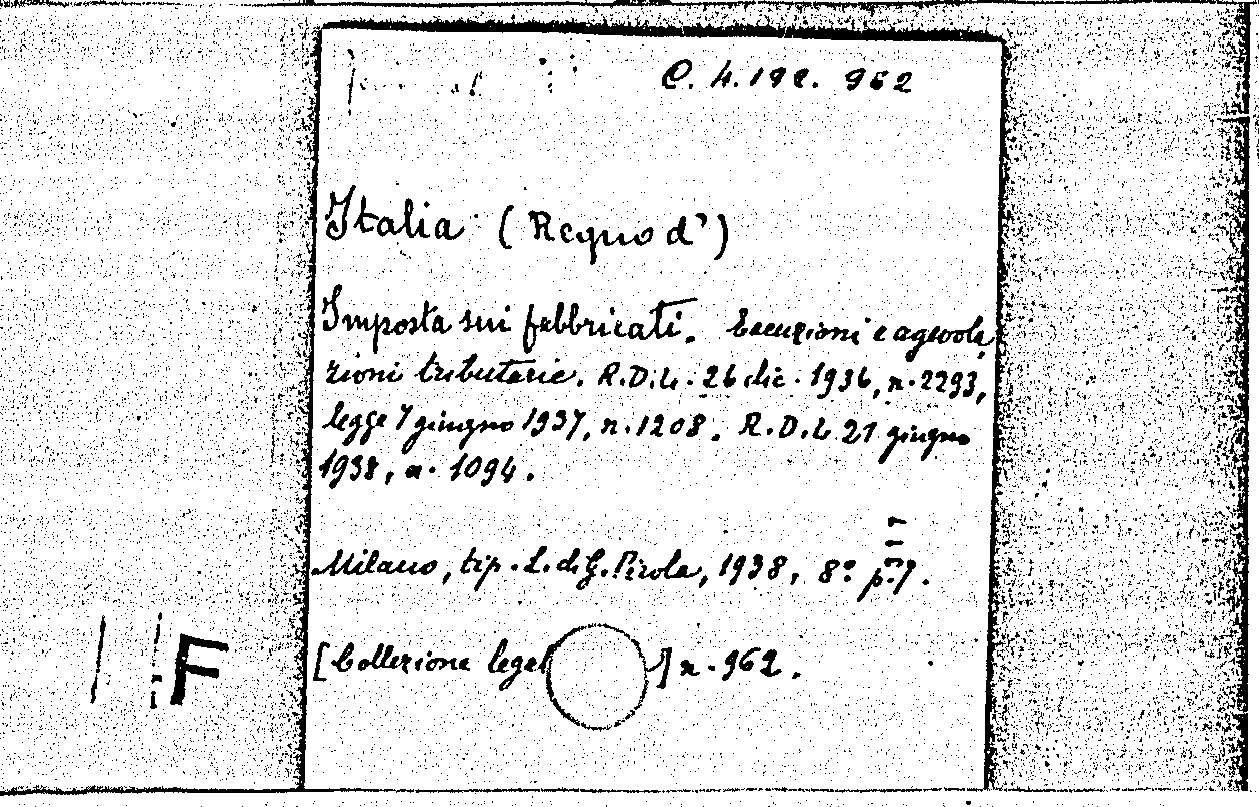 C. 4. 192. 962
Italia (Regno d')
Imposta sui fabbricati. Esenzioni e agevola
zioni tributarie. R.D.L. 26 dic. 1936, n. 2293,
legge 7 giugno 1937, n. 1208. R.D.L. 21 giugno
1938, n. 1094.
Milano, tip. L. di G. Pirola, 1938, 8° p. 7.
[Collezione legal ] n. 962.
F